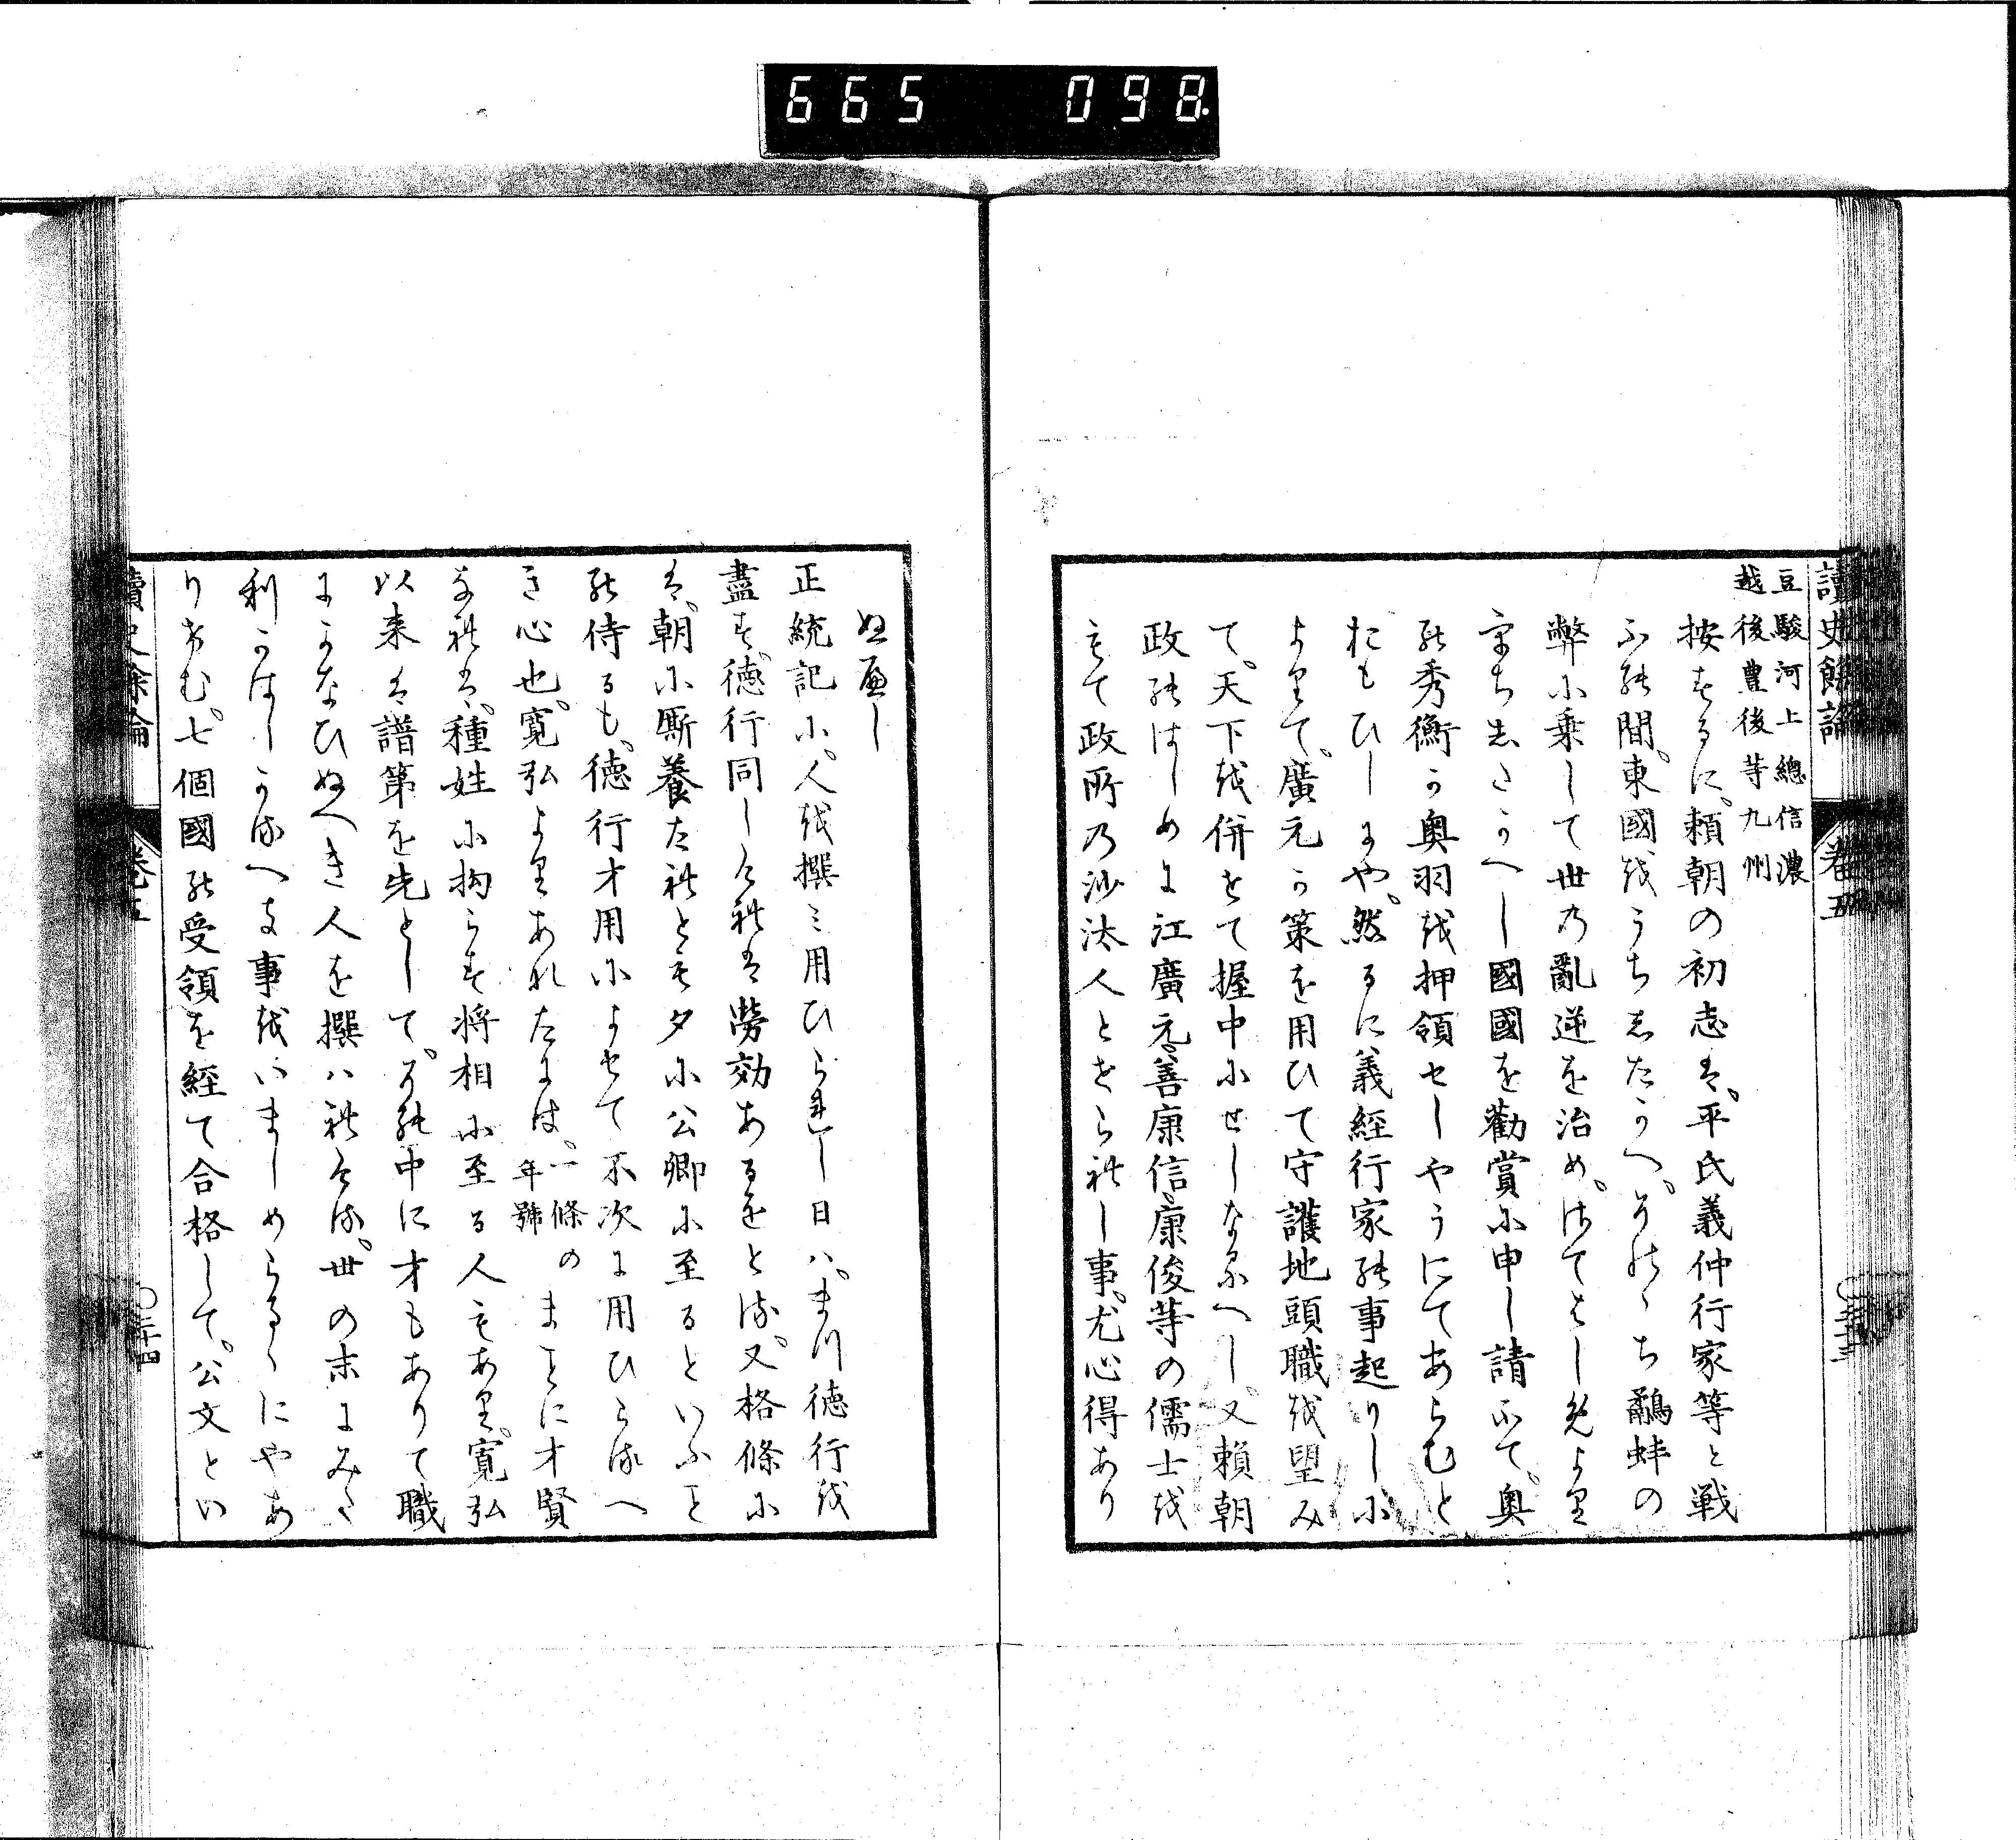 665 098
讀史餘論 卷五 〇三十三
豆駿河上總信濃
越後豊後等九州
按するに頼朝の初志は平氏義仲行家等と戦
ふ能間東國越うちしたかへその能ち鷸蚌の
弊に乗して世乃亂逆を治めはてはし免より
うちしたかへし國國を勸賞に申し請ひて奥
能秀衡か奥羽越押領せしやうにてあらむと
おもひしにや然るに義經行家能事起りしに
よりて廣元か策を用ひて守護地頭職越望み
て天下越併せて握中にせしなるへし又頼朝
政能はしめに江廣元善康信康俊等の儒士越
もて政所乃沙汰人とせられし事尤心得あり
ぬへし
正統記に人越撰ミ用ひられし日ハまつ徳行越
盡す徳行同しけれは勞効あるをとる又格條に
は朝に厮養たれとも夕に公卿に至るといふこと
能侍るも徳行才用によりて不次に用ひらるへ
き心也寛弘よりあなたには一條の年號まことに才賢
なれは種姓に拘らす將相に至る人もあり寛弘
以来は譜第を先としてその中に才もありて職
にかなひぬへき人を撰ハれける世の末にみた
利かはしかるへき事越いましめらるゝにやあ
りけむ七個國能受領を経て合格して公文とい
讀史餘論 卷五 〇三十四